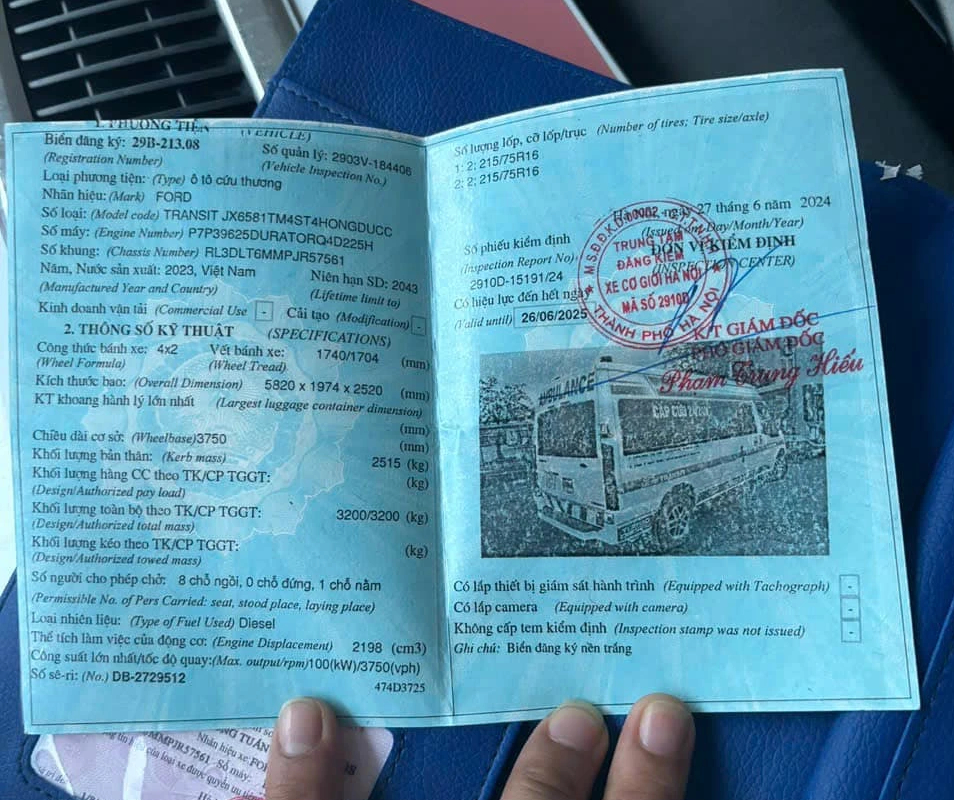 1. PHƯƠNG TIỆN (VEHICLE)
Biển đăng ký: 29B-213.08 Số quản lý: 2903V-184406
(Registration Number) (Vehicle Inspection No.)
Loại phương tiện: (Type) ô tô cứu thương
Nhãn hiệu: (Mark) FORD
Số loại: (Model code) TRANSIT JX6581TM4ST4HONGDUCC
Số máy: (Engine Number) P7P39625DURATORQ4D225H
Số khung: (Chassis Number) RL3DLT6MMPJR57561
Năm, Nước sản xuất: 2023, Việt Nam Niên hạn SD: 2043
(Manufactured Year and Country) (Lifetime limit to)
Kinh doanh vận tải (Commercial Use - Cải tạo (Modification) -
2. THÔNG SỐ KỸ THUẬT (SPECIFICATIONS)
Công thức bánh xe: 4x2 Vết bánh xe: 1740/1704 (mm)
(Wheel Formula) (Wheel Tread)
Kích thước bao: (Overall Dimension) 5820 x 1974 x 2520 (mm)
KT khoang hành lý lớn nhất (Largest luggage container dimension)
(mm)
Chiều dài cơ sở: (Wheelbase)3750 (mm)
Khối lượng bản thân: (Kerb mass) 2515 (kg)
Khối lượng hàng CC theo TK/CP TGGT: (kg)
(Design/Authorized pay load)
Khối lượng toàn bộ theo TK/CP TGGT: 3200/3200 (kg)
(Design/Authorized total mass)
Khối lượng kéo theo TK/CP TGGT: (kg)
(Design/Authorized towed mass)
Số người cho phép chở: 8 chỗ ngồi, 0 chỗ đứng, 1 chỗ nằm
(Permissible No. of Pers Carried: seat, stood place, laying place)
Loại nhiên liệu: (Type of Fuel Used) Diesel
Thể tích làm việc của động cơ: (Engine Displacement) 2198 (cm3)
Công suất lớn nhất/tốc độ quay:(Max. output/rpm)100(kW)/3750(vph)
Số sê-ri: (No.) DB-2729512
474D3725
Số lượng lốp, cỡ lốp/trục (Number of tires; Tire size/axle)
1: 2: 215/75R16
2: 2: 215/75R16
ngày 27 tháng 6 năm 2024
(Issued on Day/Month/Year)
Số phiếu kiểm định ĐƠN VỊ KIỂM ĐỊNH
(Inspection Report No) (INSPECTION CENTER)
2910D-15191/24
Có hiệu lực đến hết ngày
(Valid until) 26/06/2025
TRUNG TÂM
ĐĂNG KIỂM
XE CƠ GIỚI HÀ NỘI
MÃ SỐ 2910D
THÀNH PHỐ HÀ NỘI
K/T GIÁM ĐỐC
PHÓ GIÁM ĐỐC
Phạm Trung Hiếu
AMBULANCE
CẤP CỨU
Có lắp thiết bị giám sát hành trình (Equipped with Tachograph) -
Có lắp camera (Equipped with camera) -
Không cấp tem kiểm định (Inspection stamp was not issued) -
Ghi chú: Biển đăng ký nền trắng
TUẤN
Nhãn hiệu xe:
MMPJR57561 Số máy:
của loại xe được quyền ưu tiên